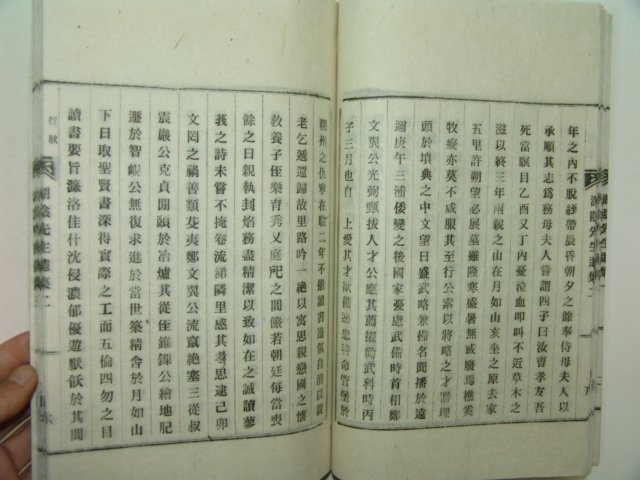 年之內不脫絰帶晨昏朝夕之餘奉侍母夫人以
承順其志爲務母夫人嘗謂四子曰汝曹孝友吾
死當瞑目乙酉又丁內憂泣血叩叫不近草木之
滋以終三年兩親之山在月如山亥坐之原去家
五里許朔望必展墓雖隆寒盛暑無或廢焉樵奚
牧竪亦莫不感服其至行公素以將略之才署埋
頭於墳典之中文望日盛武略兼備名聞播於遠
邇庚午三浦倭變之後國家憂慮武備時首相鄭
文翼公光弼甄拔人才公應其薦擢勸武科時丙
子三月也自 上愛其才欲備邊患特命管堡於
朔州之仇寧在任二年不撤讀書遂佩自清以親
老乞遞還歸故里路吟一絶以寓思親戀國之懷
敎養子侄樂育秀又庭配之間儼若朝廷每當喪
餘之日親執刲烙務盡精潔以致如在之誠讀蓼
莪之詩未嘗不掩卷流涕隣里感其孝思逮己卯
文罔之禍善類芟夷鄭文翼公流竄絶塞三從叔
震巖公克貞閒頤於冶爐其從侄錐錁公繪地肥
遯於智峴公無復求進於當世築精舍於月如山
下日取聖賢書深得實際之工而五倫四勿之目
讀書要旨濂洛佳什沈侵濃郁優遊厭飫於其間
行狀
湖陰先生遺集二